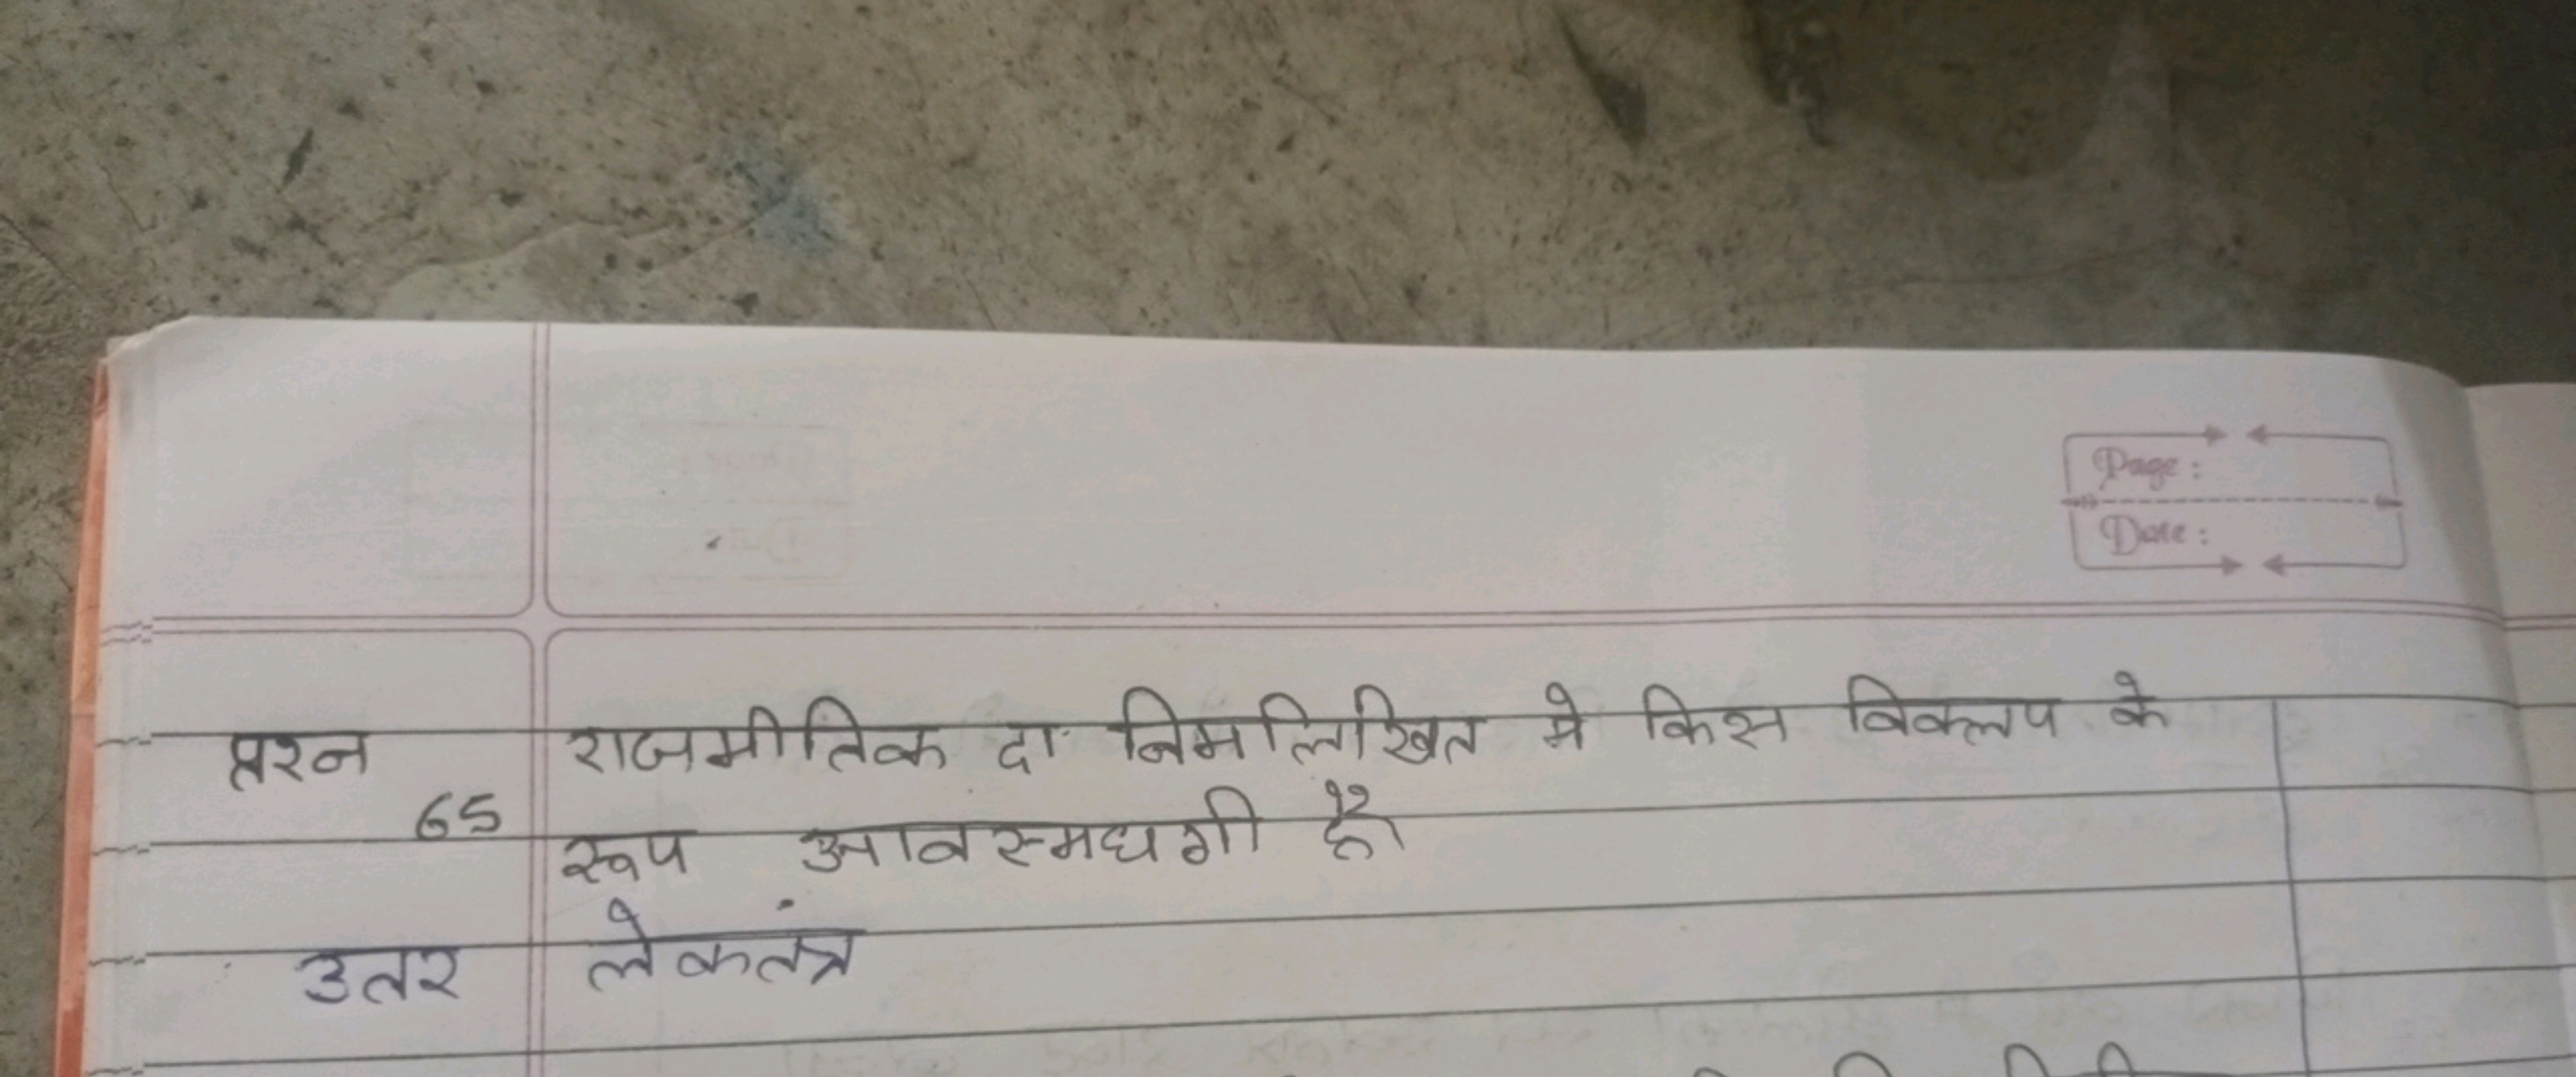 Page :
Date :
प्रश्न राजमीतिक दा निमलिखित मे किस विकलप के
65
रूप आवस्मधगी है
उतर लेकतंत्र